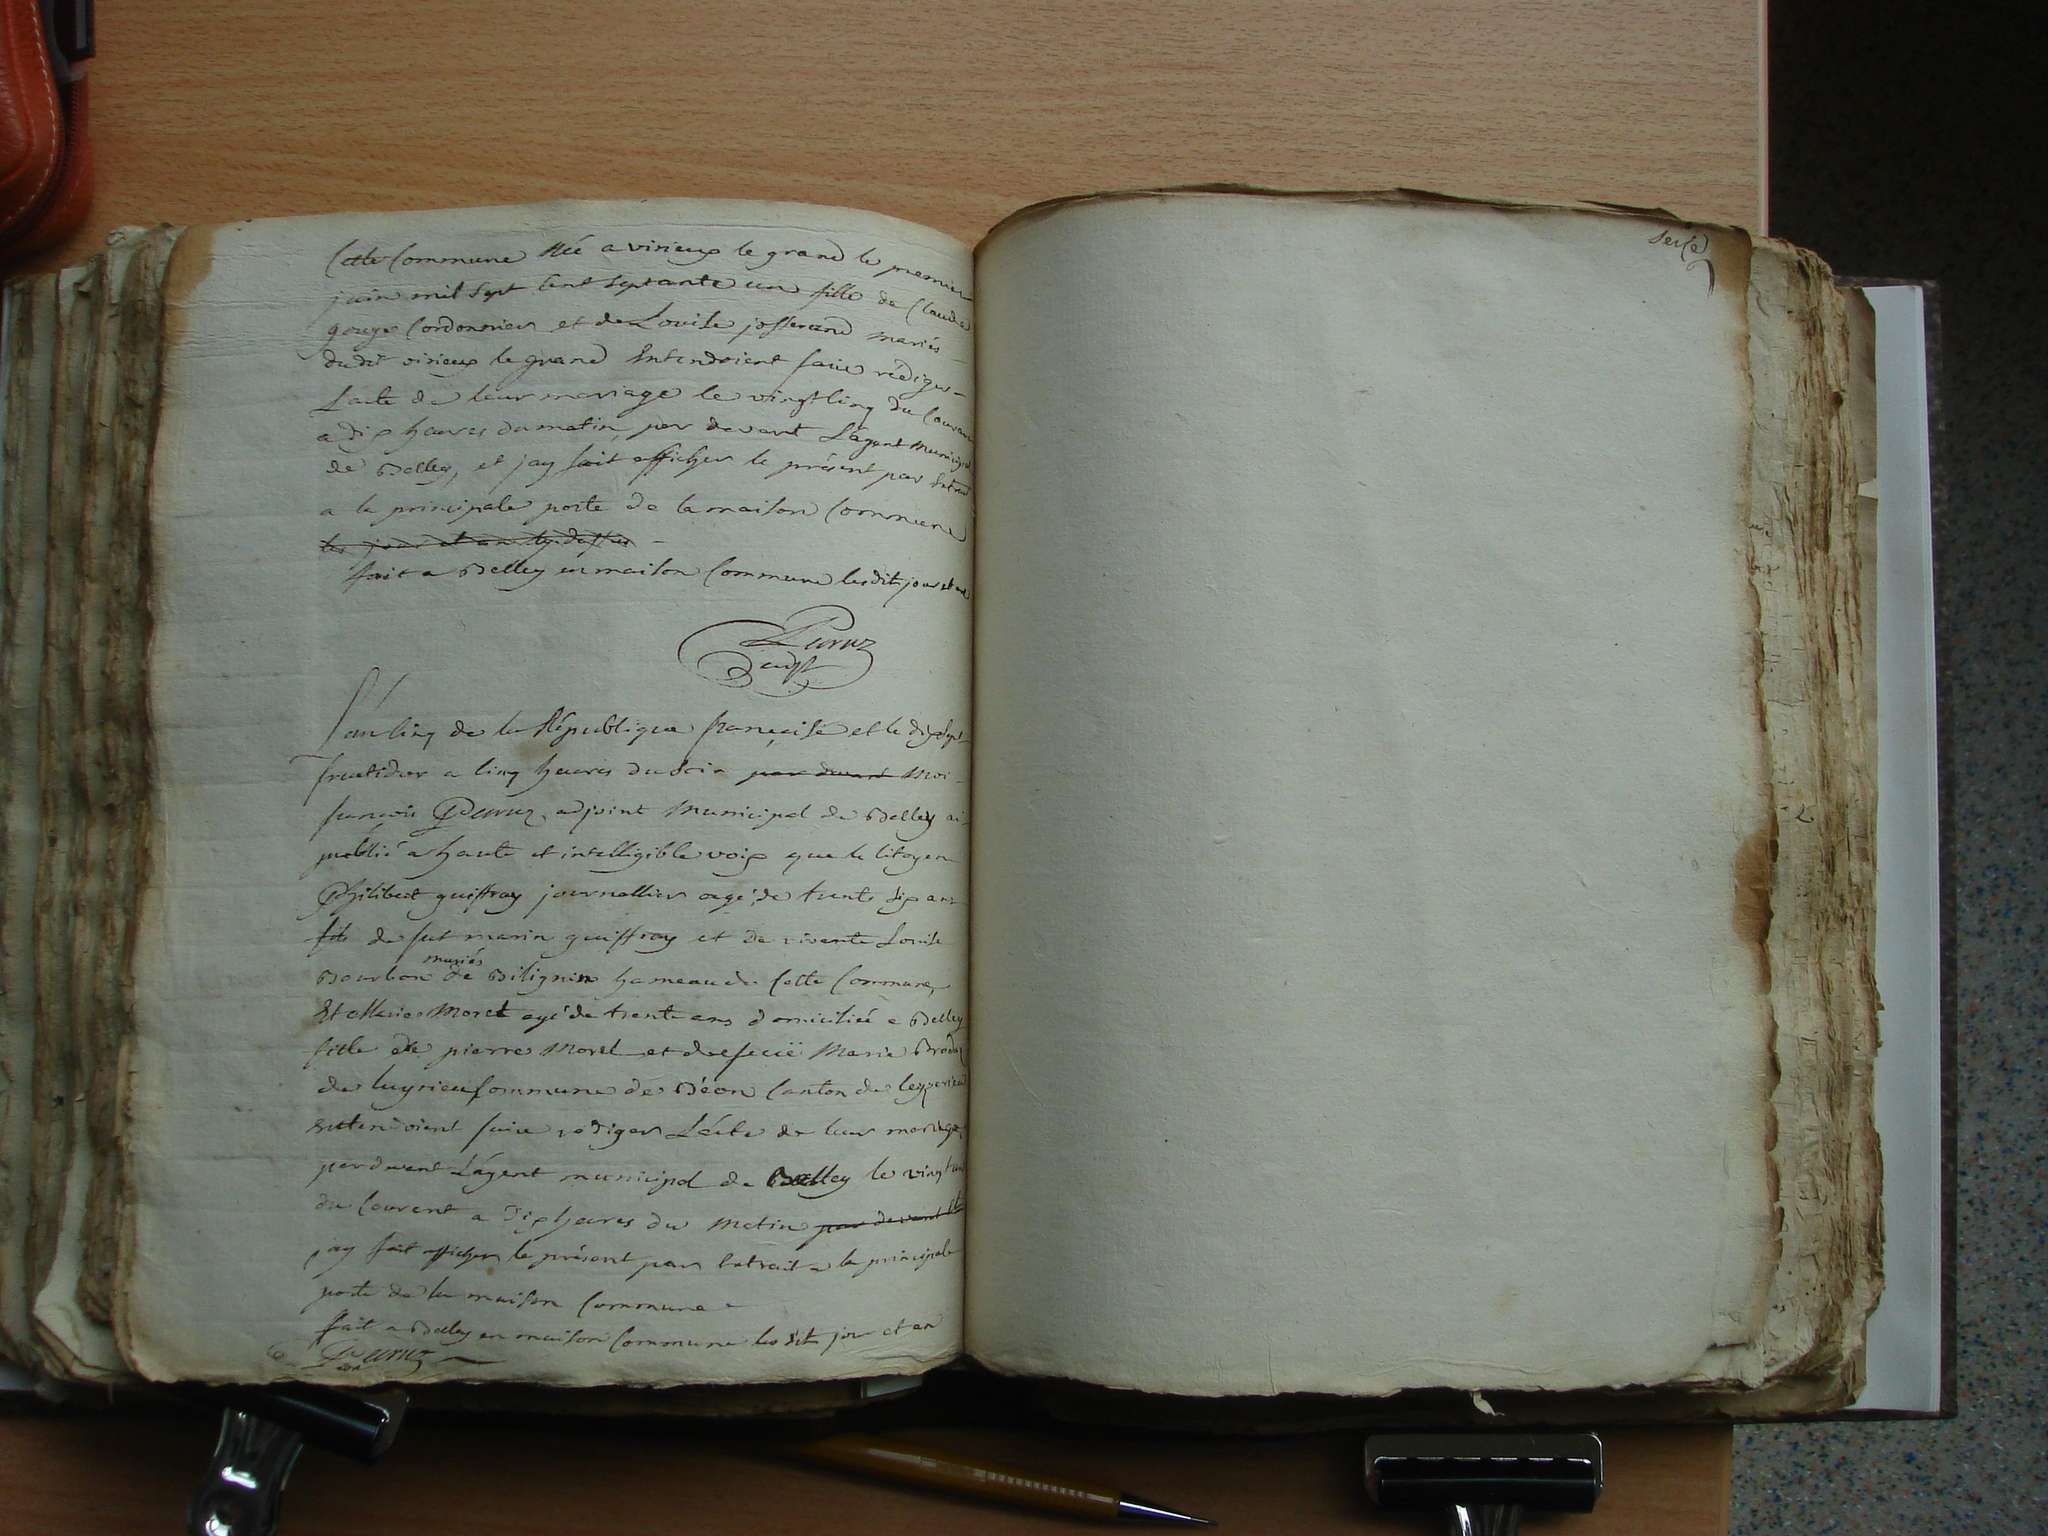 Cette Commune Née a virieux le grand le premier
juin mil Sept Cent Septante un fille de Claude
gouge Cordonnier et de Louise josserand mariés
dudit virieux le grand Entendoient faire rédiger
Lacte de leur mariage le vingt Cinq du Courant
a dix heures du matin par devant Lagent Municipal
de Belley, et jay fait afficher le présent par Extrait
a la principale porte de la maison Commune
les jour et an
fait a Belley en maison Commune lesdit jour et an
Peruz
adjt
Lan Cinq de la République française et le dix Sept
fructidor a Cinq heures du Soir par devant Moi
françois Peruz adjoint Municipal de Belley ai
publié a haute et intelligible voix que le Citoyen
Philibert guiffray journallier agé de trente Six ans
fils de fut marin guiffray et de vivante Louise
mariés
Bourbon de Bilignin hameau de Cette Commune,
Et Marie Morel agé de trente ans domiciliée a Belley
fille de pierre Morel et de Marie
de luyrieu Commune de Béon Canton de
Entendoient faire rédiger Lacte de leur mariage
par devant Lagent municipal de Belley le vingt
du Courent a dix heures du Matin par devant
jay fait afficher le présent par Extrait a la principale
porte de la maison Commune
fait a Belley en maison Commune les dit jour et an
Peruz